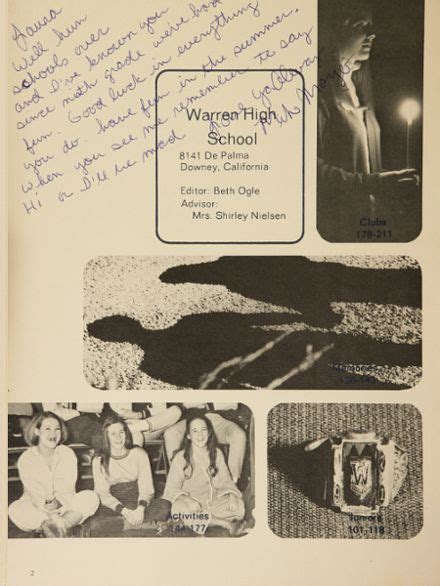 Laura
Well hun
schools over
and I've known you
since ninth grade we've had
fun. Good luck in everything
you do. have fun in the summer.
When you see me remember to say
Hi or I'll be mad Love ya Always
Warren High
School
8141 De Palma
Downey, California
Editor: Beth Ogle
Advisor:
Mrs. Shirley Nielsen
Clubs
178-211
Activities
144-177
Juniors
101-118
2